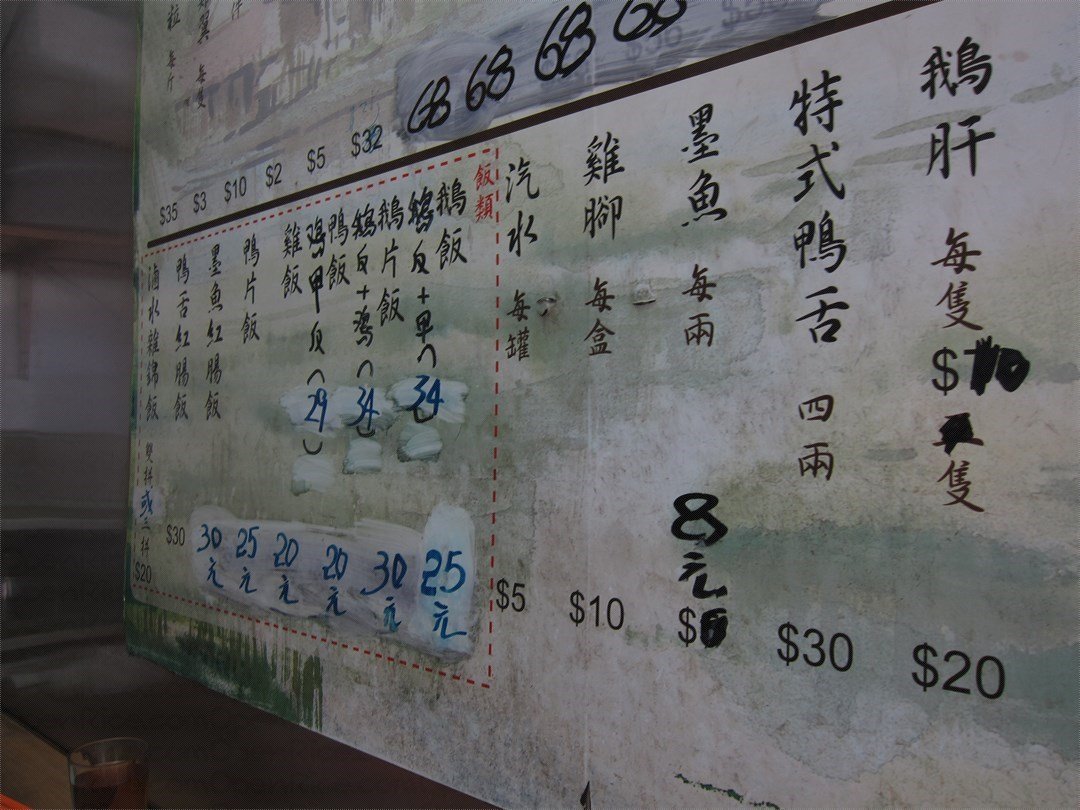 68 68 68 68
$32
$5
$2
$10
$3
$35
每隻
每斤
鵝肝 每隻 $10 隻 $20
特式鴨舌 四兩 $30
墨魚 每兩 8元
雞腳 每盒 $10
汽水 每罐 $5
飯類
鵝飯 25元
(34)
鵝片飯 30元
(34)
鴨飯 20元
(29)
雞飯 20元
鴨片飯 25元
墨魚紅腸飯 30元
鴨舌紅腸飯 $30
滷水雜錦飯 雙拼或三拼 $20